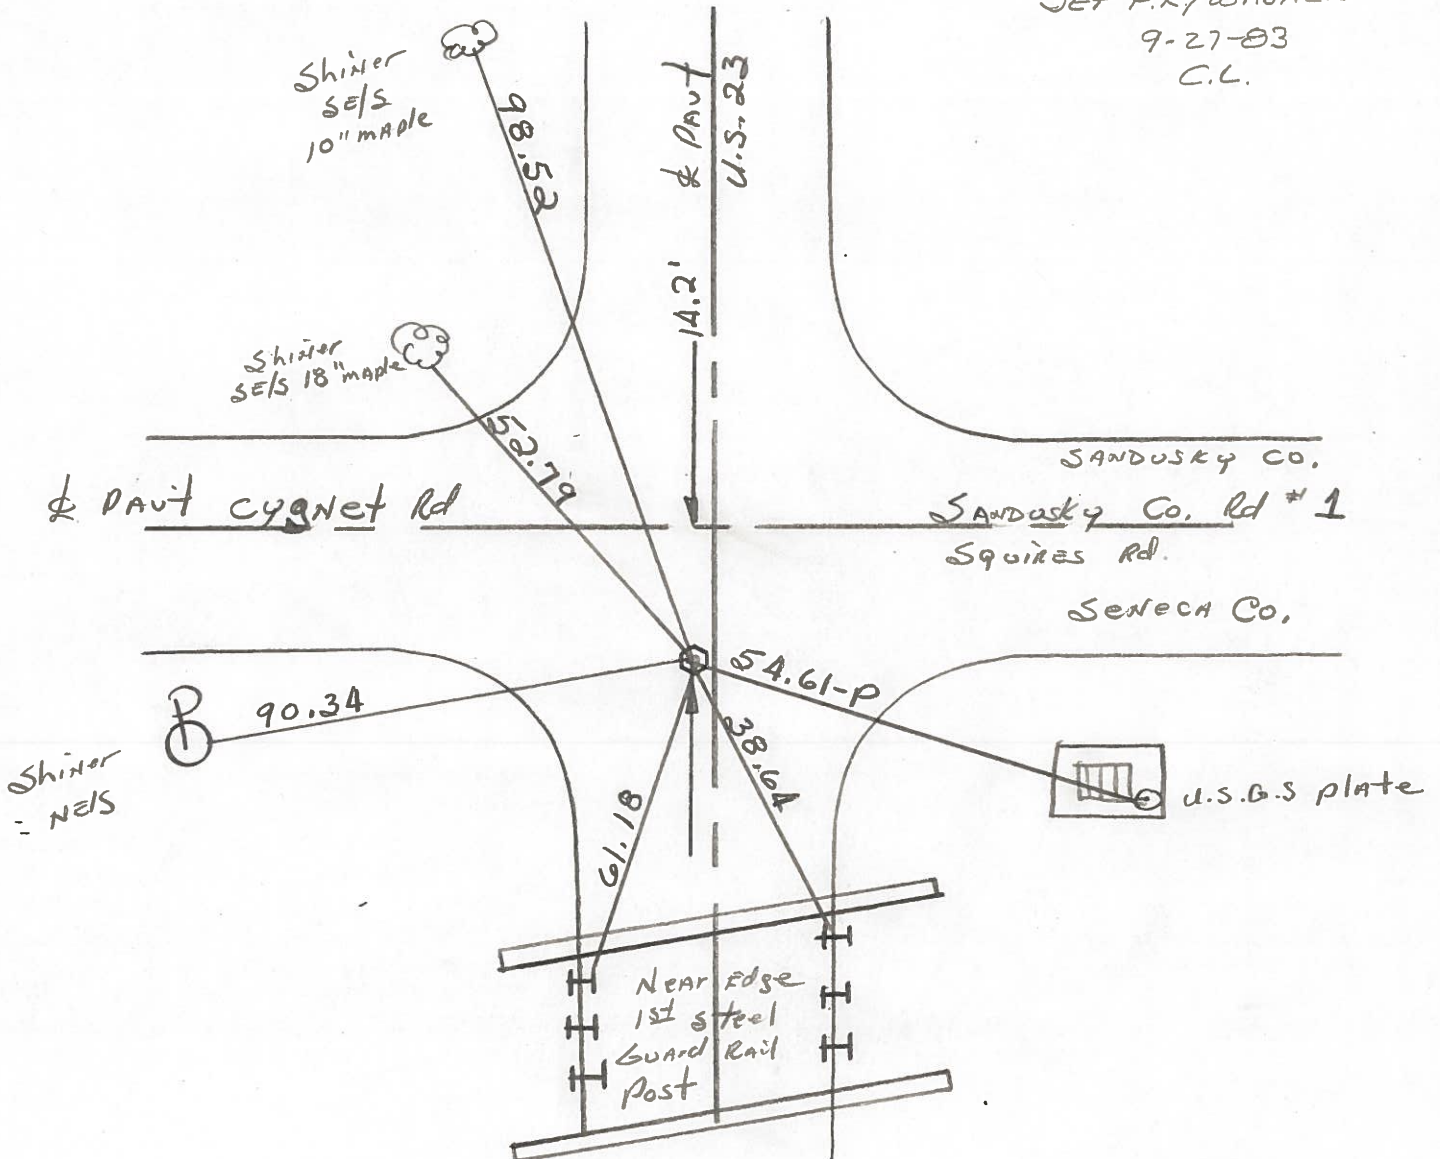 9-27-83
C.L.
Shiner
SE/S
10" maple
98.52
℄ Pavt
U.S. 23
14.2'
Shiner
SE/S 18" maple
52.79
℄ Pavt Cygnet Rd
SANDUSKY CO.
SANDUSKY Co. Rd #1
SQUIRES Rd.
SENECA Co.
54.61-P
P
90.34
38.64
Shiner
NE/S
61.18
U.S.G.S plate
Near Edge
1st steel
Guard Rail
Post